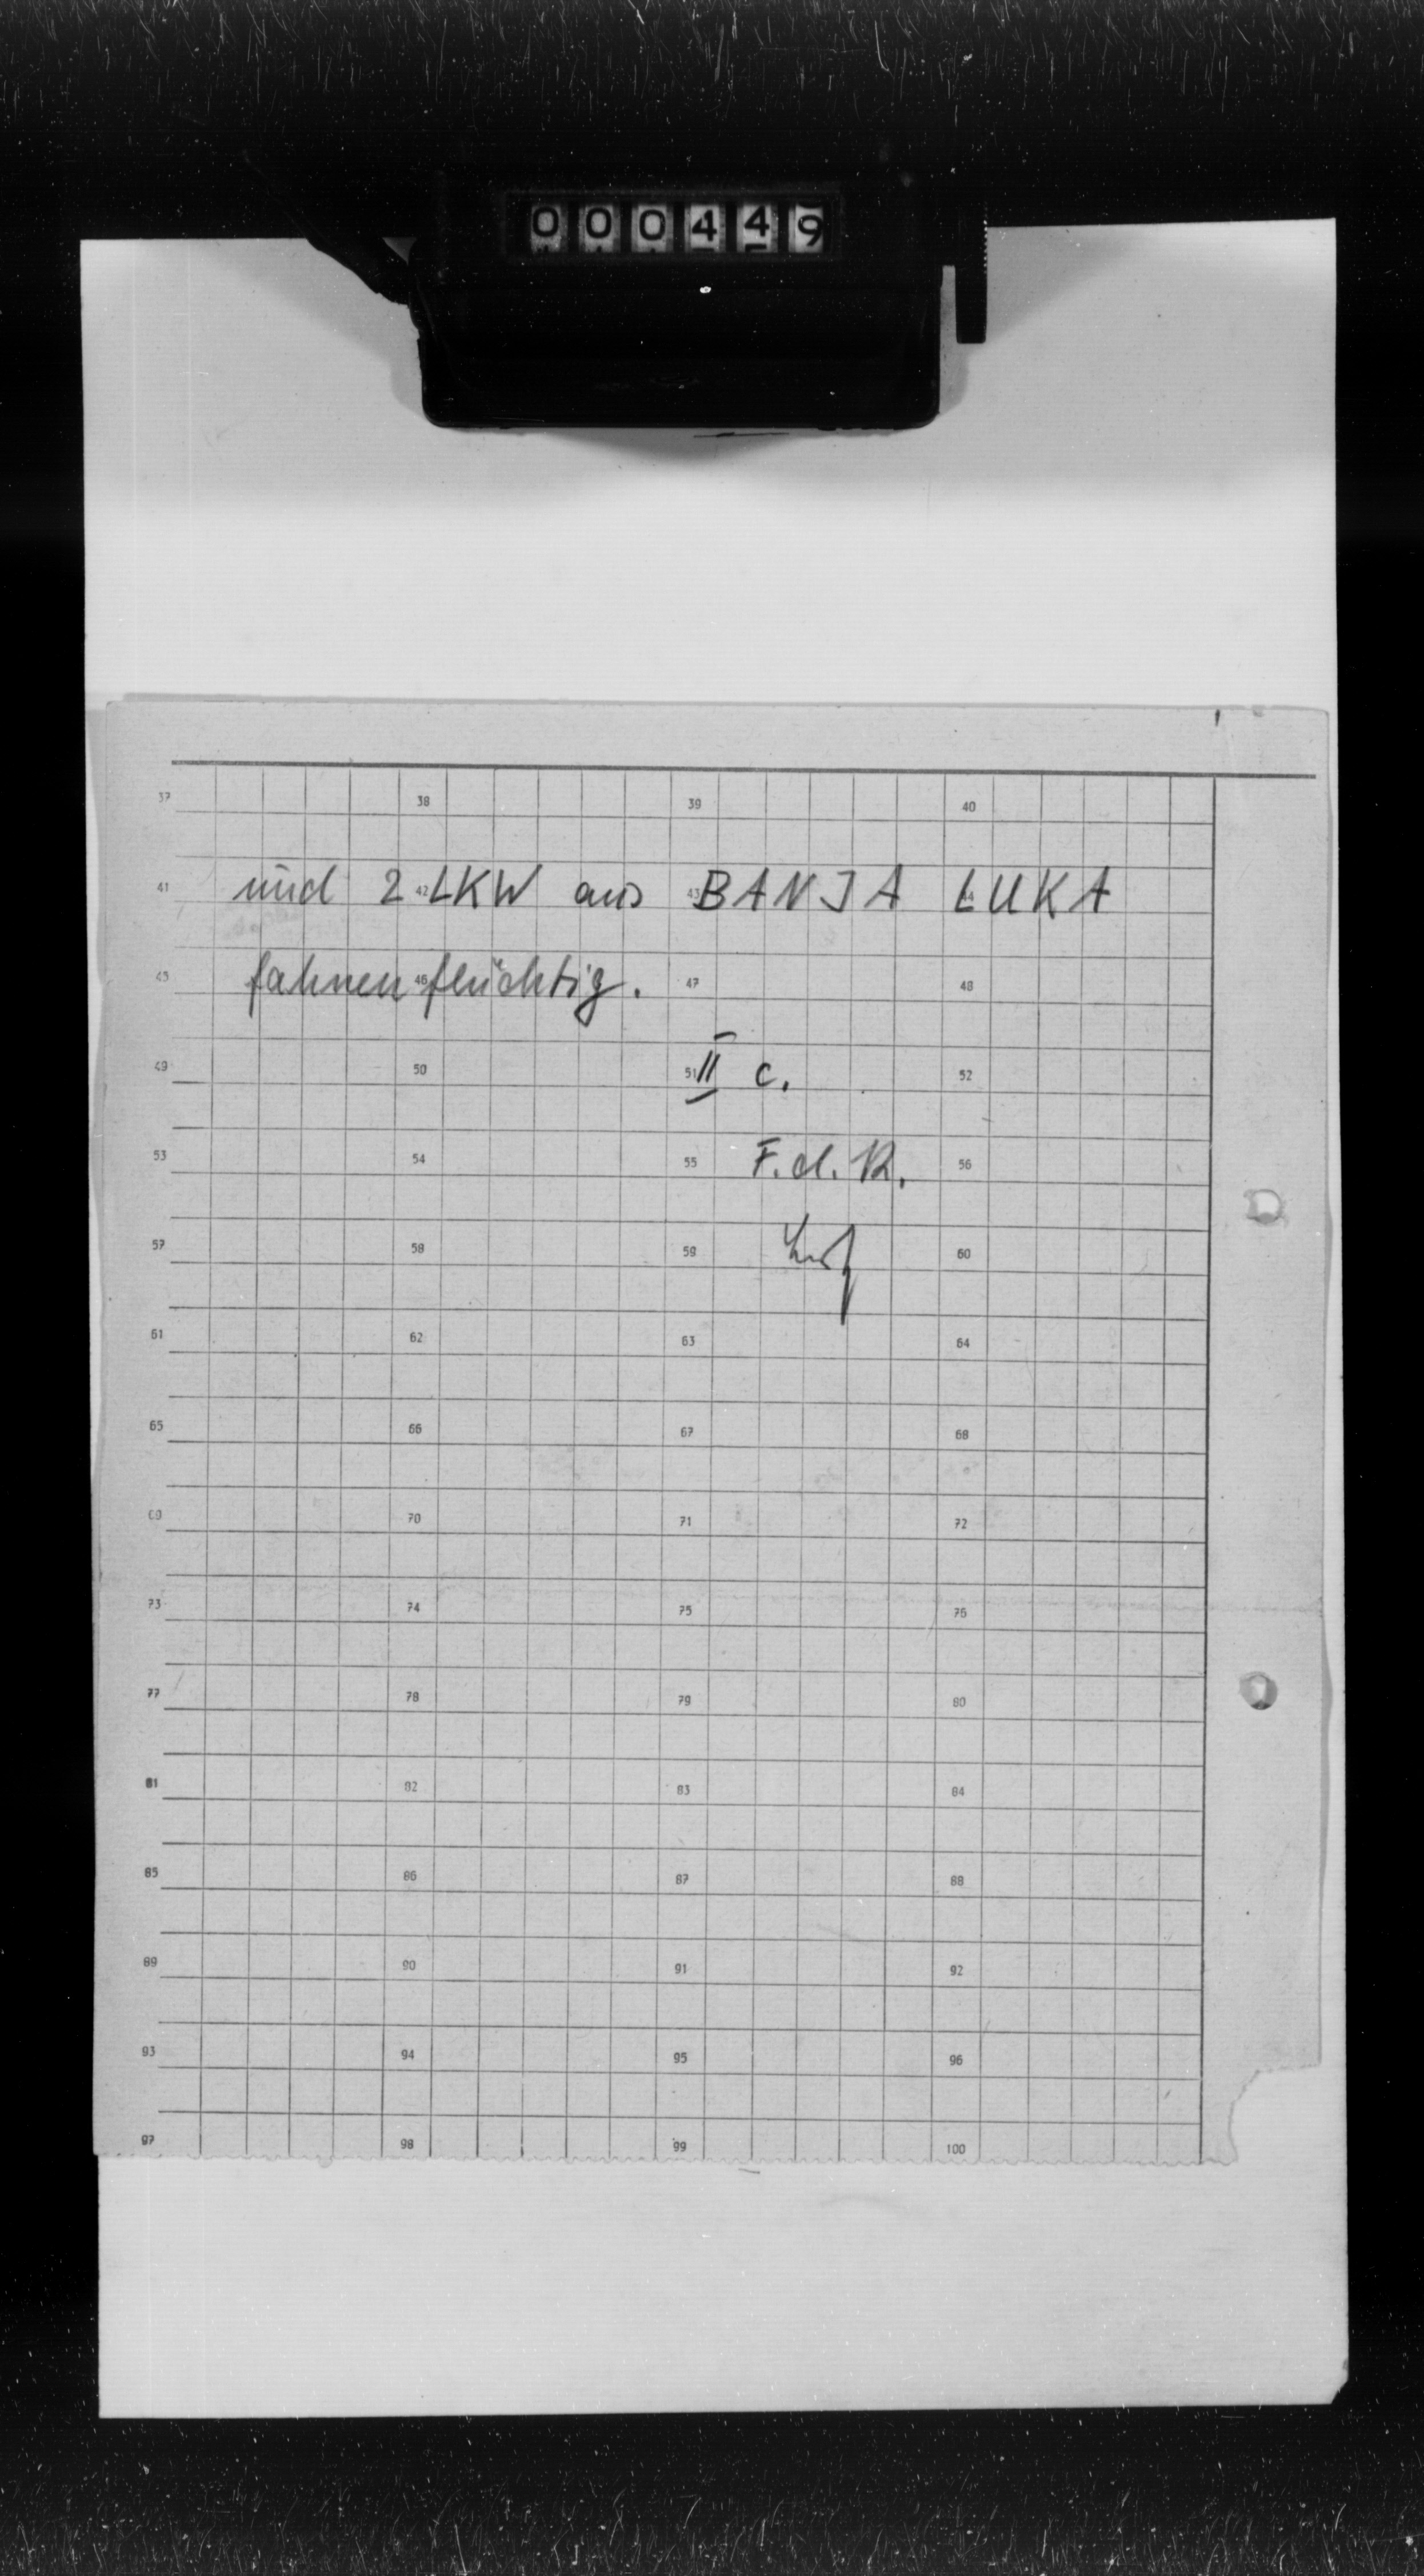 000449
37 38 39 40
41 und 2 42 LKW aus 43 BANJA LUKA
45 fahnen 46 flüchtig. 47 48
49 50 51 II c. 52
53 54 55 F. d. R. 56
57 58 59 60
61 62 63 64
65 66 67 68
69 70 71 72
73 74 75 76
77 78 79 80
81 82 83 84
85 86 87 88
89 90 91 92
93 94 95 96
97 98 99 100